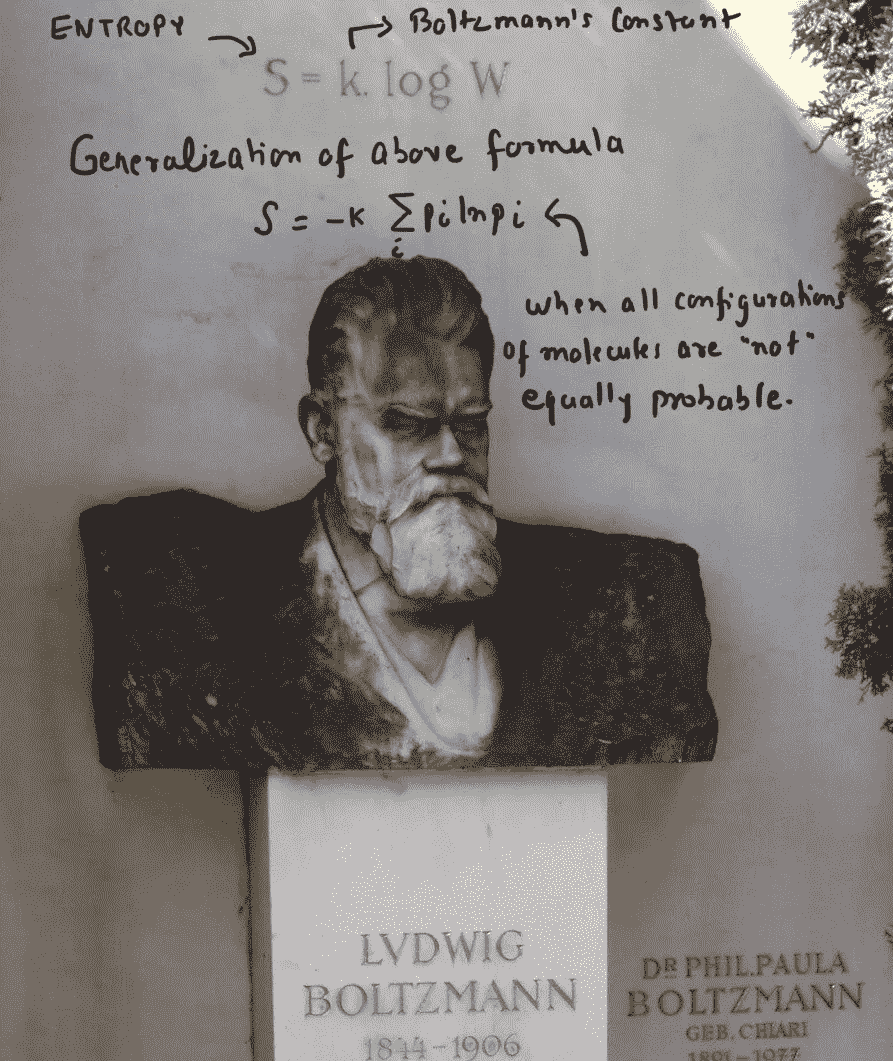 ENTROPY → Boltzmann's Constant
S = k. log W
Generalization of above formula
S = -K ∑ pi ln pi
i
when all configurations
of molecules are "not"
equally probable.
LVDWIG
BOLTZMANN
1844-1906
DR PHIL.PAULA
BOLTZMANN
GEB. CHIARI
1891-1977